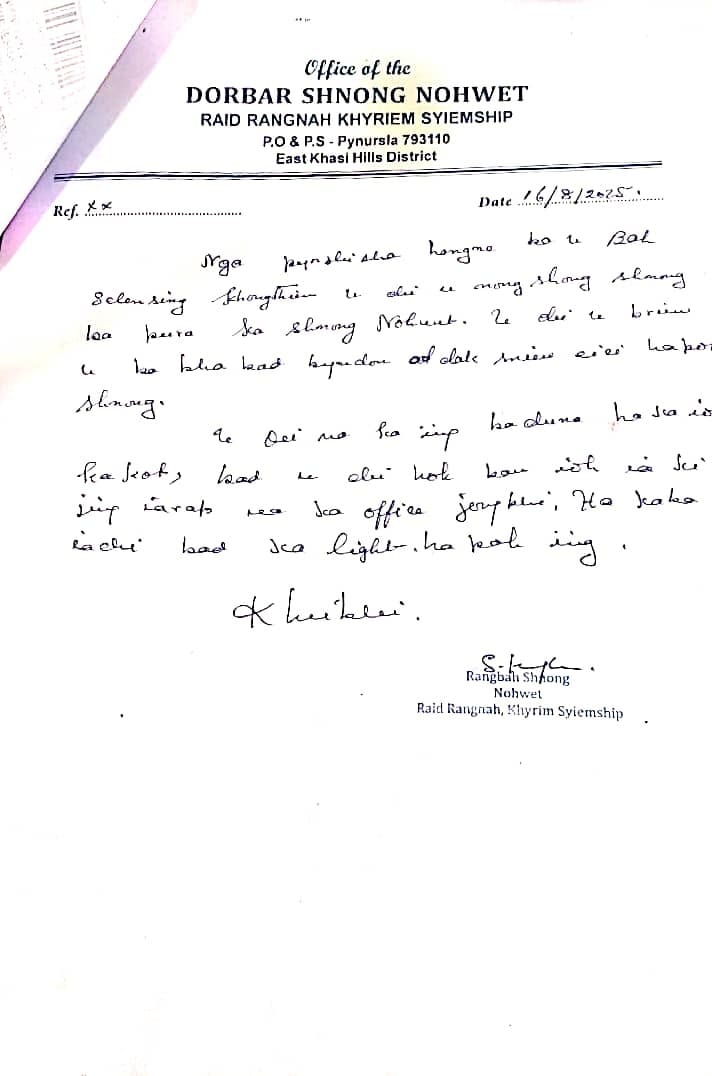 Office of the
DORBAR SHNONG NOHWET
RAID RANGNAH KHYRIEM SYIEMSHIP
P.O & P.S - Pynursla 793110
East Khasi Hills District
Ref. xx
Date 16/8/2025.
Nga pynshisha hangne ba u Bah
Khongthiem u dei u nongshong shnong
ba pura ka Shnong Nohwet. U dei u briew
u ba bha bad kyndou
Shnong.
U dei na ka iing ba duna ha ka io
ka kot, bad u dei hok ban ioh ia ki
jing iarap na ka office jongphi, Ha kaba
iadei bad ka light. ha iing.
Khublei.
Rangbah Shnong
Nohwet
Raid Rangnah, Khyrim Syiemship